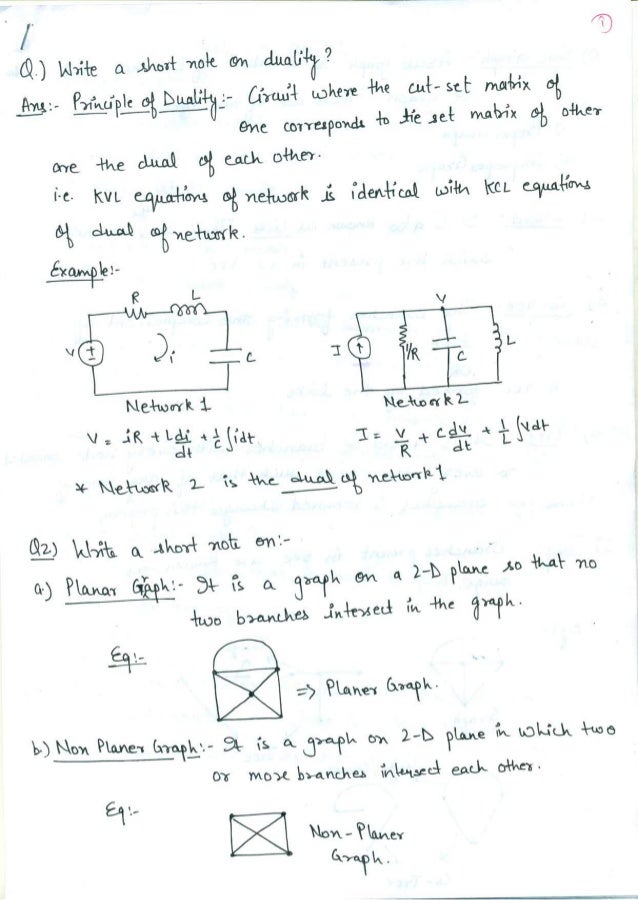 1
Q.) Write a short note on duality?
Ans:- Principle of Duality:- Circuit where the cut-set matrix of
one corresponds to tie set matrix of other
are the dual of each other.
i.e. KVL equations of network is identical with KCL equations
of dual of network.
Example:-
R L
V i C
V
I 1/R C L
Network 1 Network 2
V = iR + L di/dt + 1/C ∫idt I = V/R + C dv/dt + 1/L ∫vdt
* Network 2 is the dual of network 1
Q2) Write a short note on:-
a.) Planar Graph:- It is a graph on a 2-D plane so that no
two branches intersect in the graph.
Eg:-
=> Planer Graph.
b.) Non Planer Graph:- It is a graph on 2-D plane in which two
or more branches intersect each other.
Eg:-
Non-Planer
Graph.